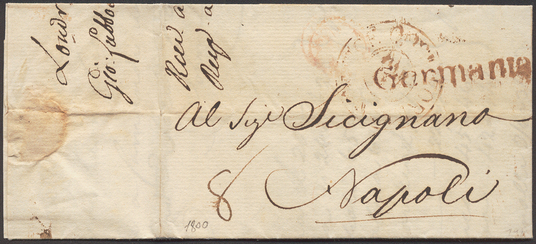 Londr
Gio: Lubbo
Recd a
Regd a
Germania
Al Sigr Sicignano
8
Napoli
1800